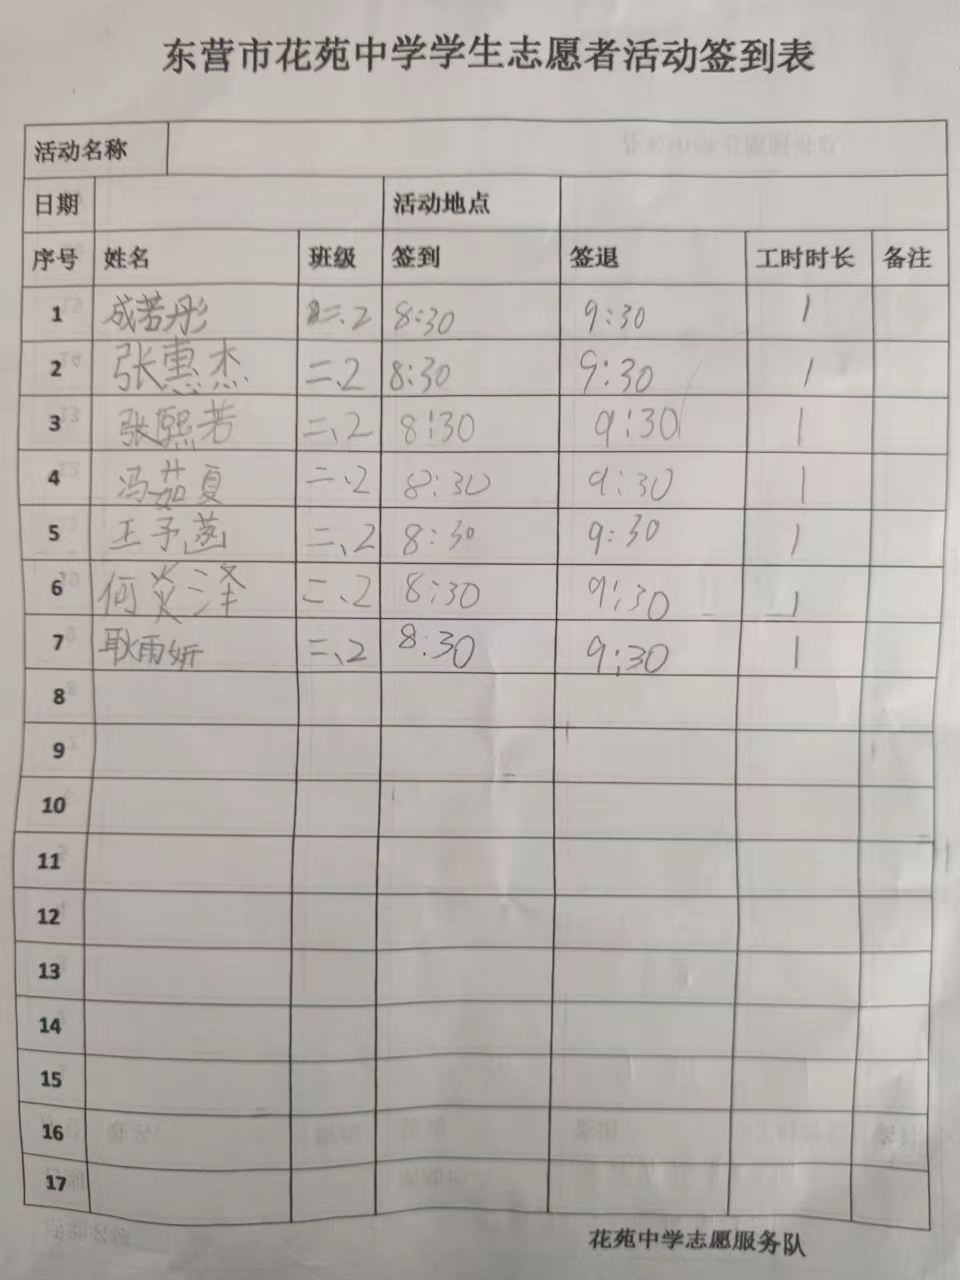 东营市花苑中学学生志愿者活动签到表
活动名称
日期 活动地点
序号 姓名 班级 签到 签退 工时时长 备注
1 成若彤 二、2 8:30 9:30 1
2 张惠杰 二、2 8:30 9:30 1
3 张熙若 二、2 8:30 9:30 1
4 冯茹夏 二、2 8:30 9:30 1
5 王予菡 二、2 8:30 9:30 1
6 何炎泽 二、2 8:30 9:30 1
7 耿雨妍 二、2 8:30 9:30 1
8
9
10
11
12
13
14
15
16
17
花苑中学志愿服务队